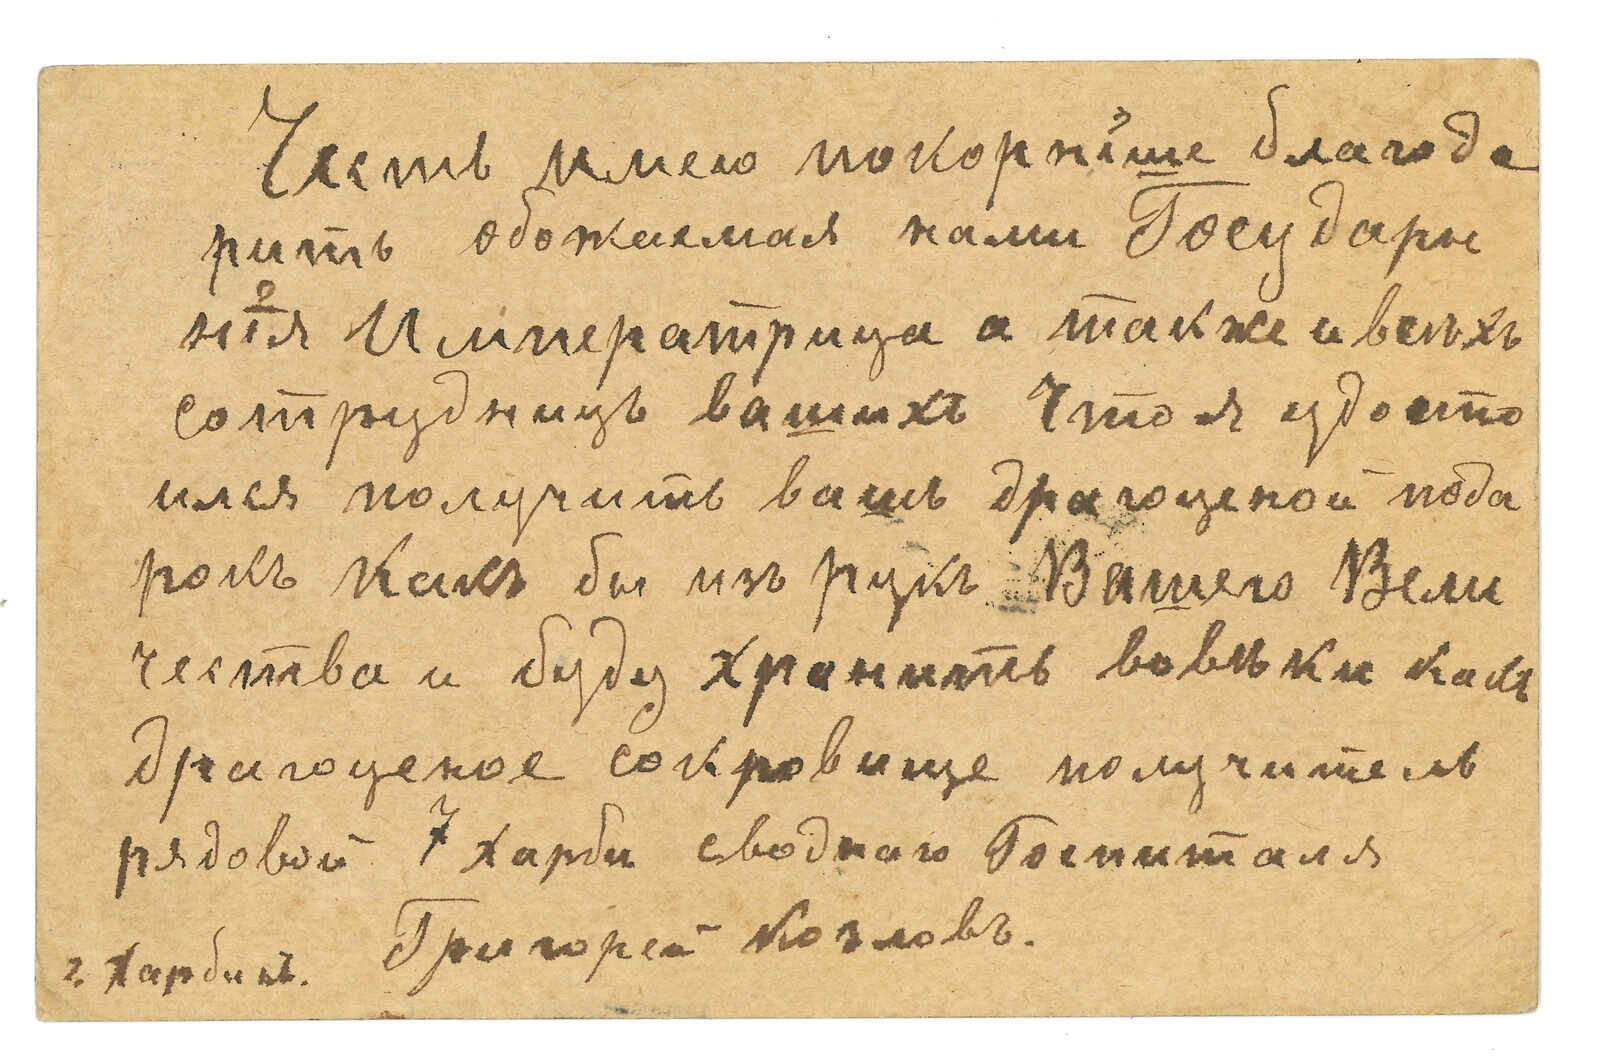 Честь имею покорнѣише благода
рить обожаемая нами Государы
нія Императрица а также и всѣхъ
сотрудницъ вашихъ Что я удосто
ился получить вашъ драгоценой пода
рокъ какъ бы изъ рукъ Вашего Вели
чества и буду хранить вовѣки какъ
драгоценое сокровище получитель
рядовой 7 харби сводного Госпиталя
Григорей Козловъ.
г. Харбинъ.